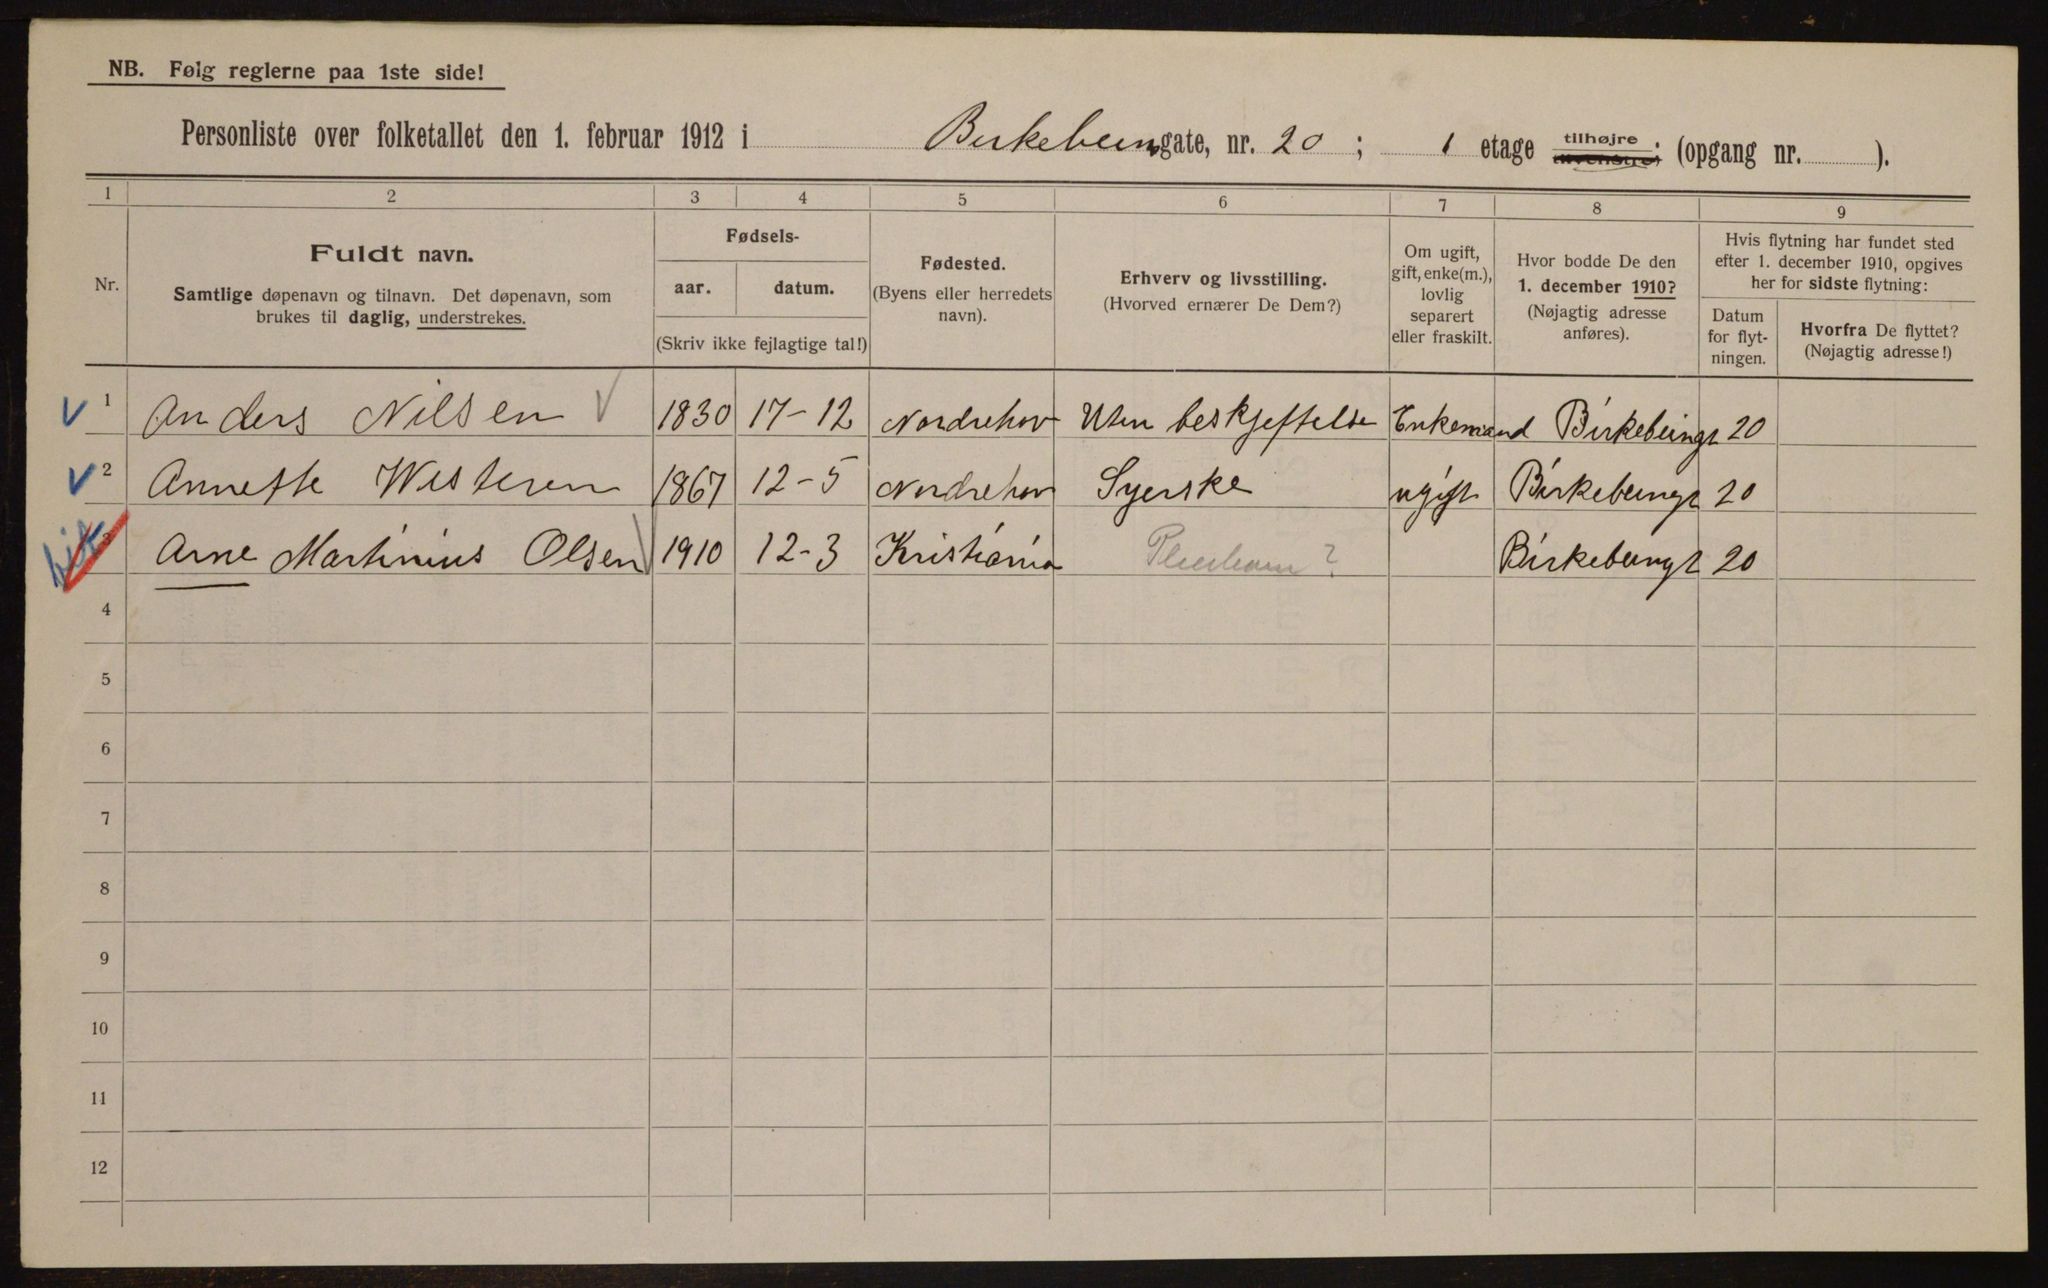 NB. Følg reglerne paa 1ste side!
Personliste over folketallet den 1. februar 1912 i Birkebeinergate, nr. 20; 1 etage tilhøjre. (opgang nr. ).
1 2 3 4 5 6 7 8 9
Nr.
Fuldt navn.
Samtlige døpenavn og tilnavn. Det døpenavn, som
brukes til daglig, understrekes.
Fødsels-
aar. datum.
(Skriv ikke fejlagtige tal!)
Fødested.
(Byens eller herredets
navn).
Erhverv og livsstilling.
(Hvorved ernærer De Dem?)
Om ugift,
gift, enke(m.),
lovlig
separert
eller fraskilt.
Hvor bodde De den
1. december 1910?
(Nøjagtig adresse
anføres).
Hvis flytning har fundet sted
efter 1. december 1910, opgives
her for sidste flytning:
Datum
for flyt-
ningen.
Hvorfra De flyttet?
(Nøjagtig adresse!)
1 Anders Nilsen 1830 17-12 Nordrehov Uten beskjeftelse Enkemand Birkebeingt 20
2 Annette Westeren 1867 12-5 Nordrehov Syerske ugift Birkebeingt 20
3 Arne Martinius Olsen 1910 12-3 Kristiania Pleiebarn? Birkebeingt 20
4
5
6
7
8
9
10
11
12